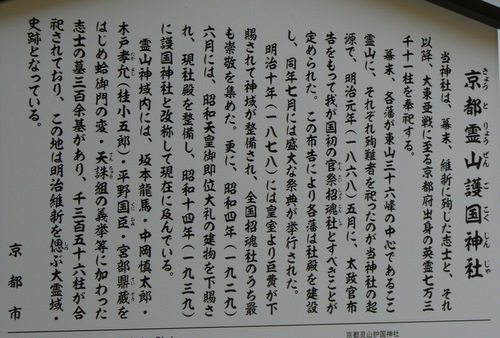 京都霊山護国神社
きょうとりょうぜんごこくじんじゃ
当神社は、幕末、維新に殉じた志士と、それ
以降、大東亜戦に至る京都府出身の英霊七万三
千十一柱を奉祀する。
幕末、各藩が東山三十六峰の中心であるここ
霊山に、それぞれ殉難者を祀ったのが当神社の起
源で、明治元年(一八六八)五月に、太政官布
告をもって我が国初の官祭招魂社とすべきことが
定められた。この布告により各藩は社殿を建設
し、同年七月には盛大な祭典が挙行された。
明治十年(一八七七)には皇室より巨費が下
賜されて神域が整備され、全国招魂社のうち最
も崇敬を集めた。更に、昭和四年(一九二九)
六月には、昭和天皇御即位大礼の建物を下賜さ
れ、現社殿を整備し、昭和十四年(一九三九)
に護国神社と改称して現在に及んでいる。
霊山神域内には、坂本龍馬・中岡慎太郎・
木戸孝允(桂小五郎)・平野国臣・宮部鼎蔵を
はじめ蛤御門の変・天誅組の義挙等に加わった
志士の墓三百余基があり、千三百五十六柱が合
祀されており、この地は明治維新を偲ぶ大霊域・
史跡となっている。
京都市
京都灵山护国神社